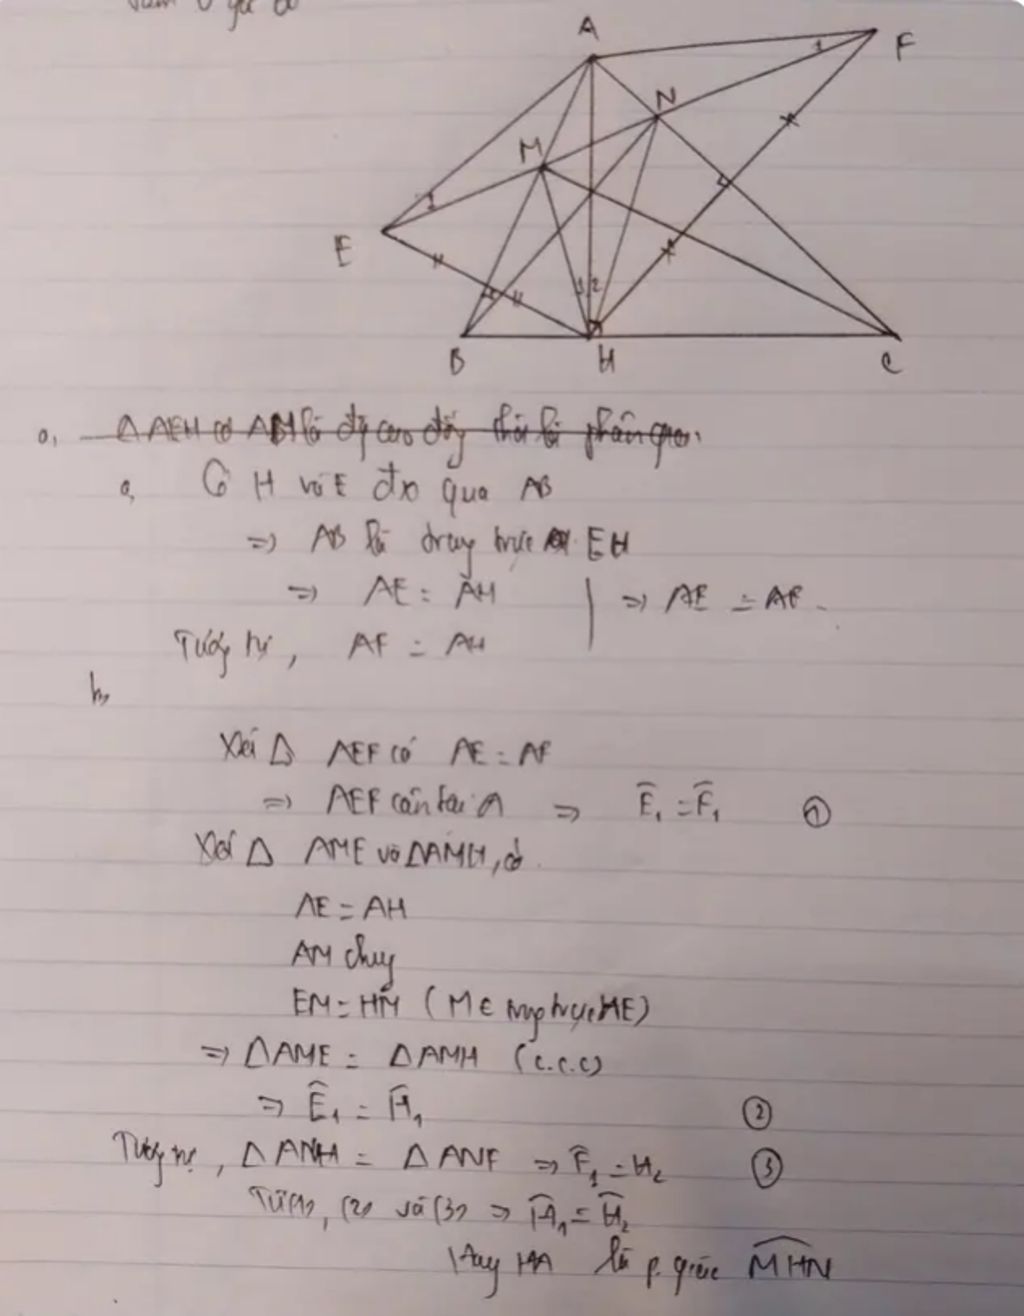 A
F
N
M
1
1
E
1 2
B
H
C
a, ΔAEH có ABH là đg cao đồng thời là phân giác
a, Có H với E đx qua AB
=> AB là trung trực EH
=> AE = AH | => AE = AF.
Tương tự, AF = AH
b,
Xét Δ AEF có AE = AF
=> AEF cân tại A => Ê₁ = F̂₁ ①
Xét Δ AME và ΔAMH, có
AE = AH
AM chung
EM = HM (M ∈ trung trực HE)
=> ΔAME = ΔAMH (c.c.c)
=> Ê₁ = Ĥ₁ ②
Tương tự, ΔANH = ΔANF => F̂₁ = H₂ ③
Từ (1), (2) và (3) => Ĥ₁ = Ĥ₂
Hay HA là p. giác M̂HN